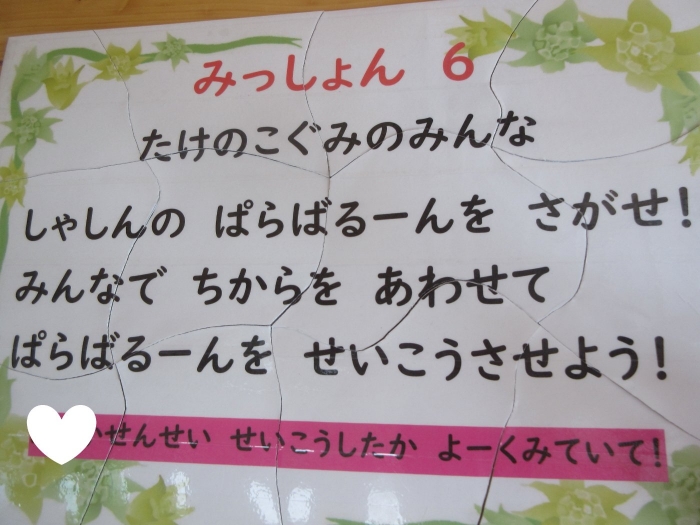 みっしょん 6
たけのこぐみのみんな
しゃしんの ぱらばるーんを さがせ!
みんなで ちからを あわせて
ぱらばるーんを せいこうさせよう!
せんせい せいこうしたか よーくみていて!